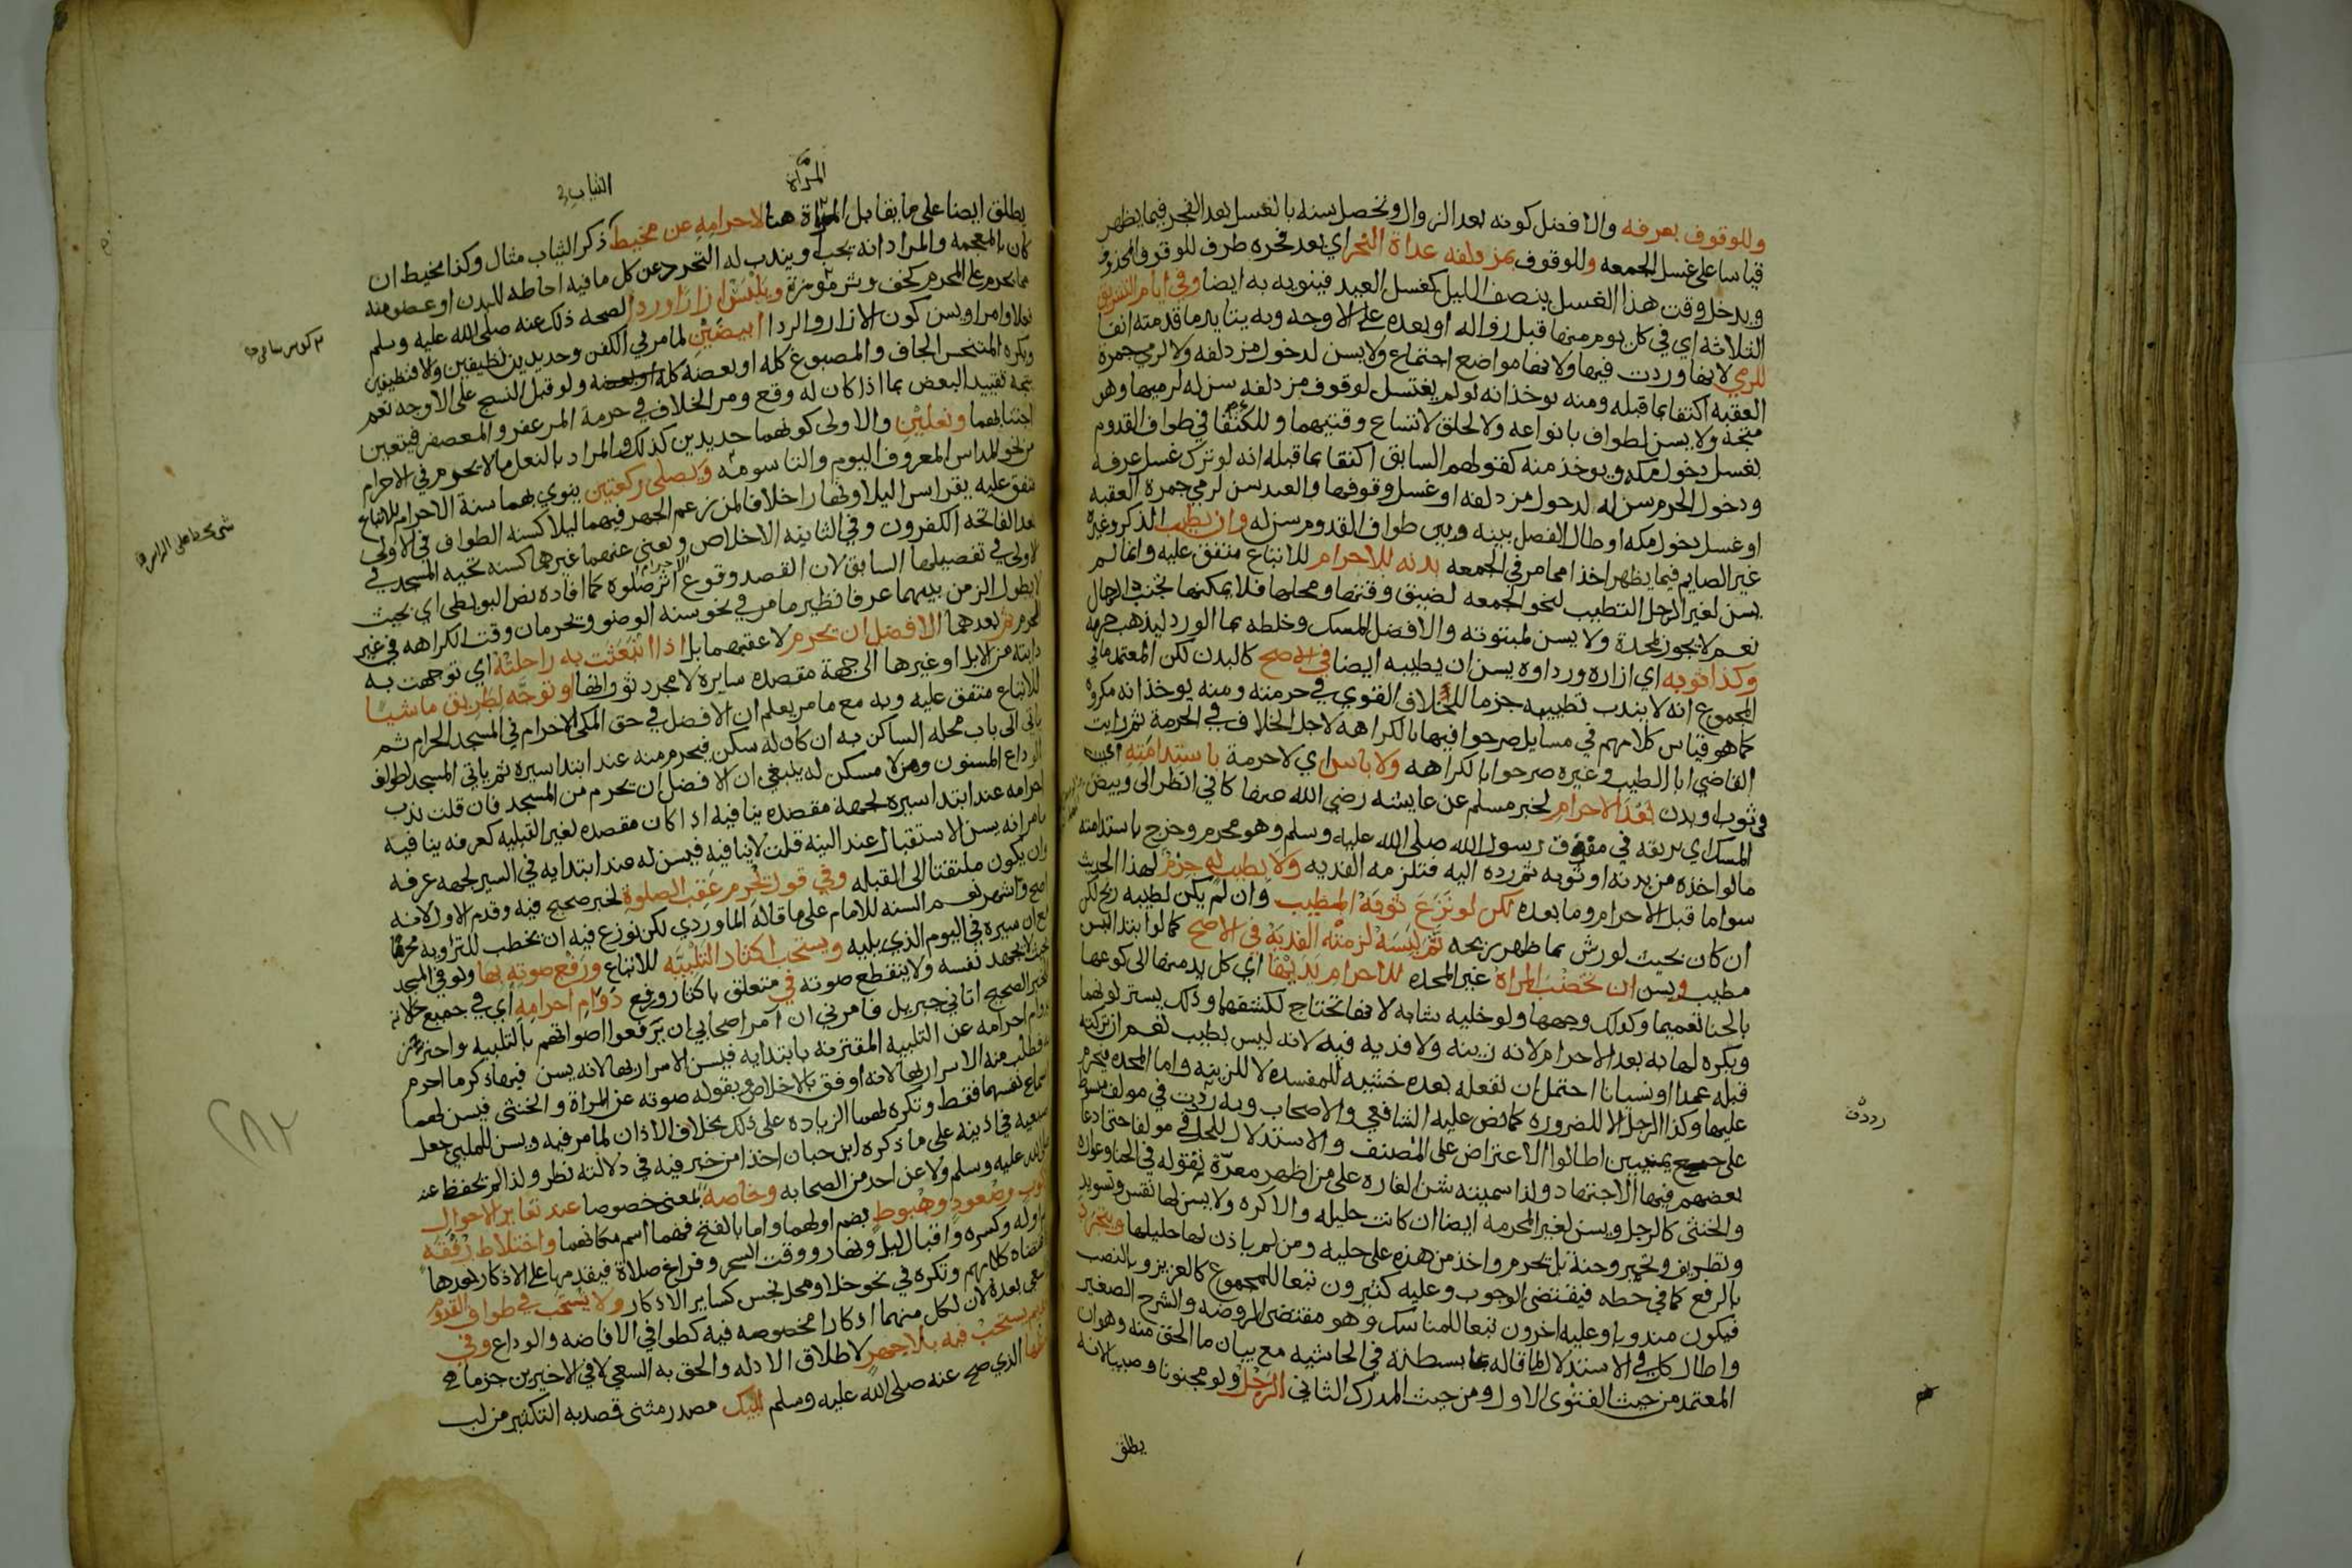 وللوقوف بعرفه والافضل كونه بعد الزوال وتحصل سنه بالغسل بعد الفجر فيما يظهر
قياسا على غسل الجمعه وللوقوف بمزدلفه غداة النحر اي بعد فجره ظرف للوقوف المحذوف
ويدخل وقت هذا الغسل بنصف الليل كغسل العيد فينويه به ايضا وفي ايام التشريق
الثلاثه اي في كل يوم منها قبل زواله او بعده على الاوجه وبه يتايد ما قدمته انفا
للرمي لانها وردت فيها ولانها مواضع اجتماع ولا يسن لدخول مزدلفه ولا لرمي جمرة
العقبه اكتفا بما قبله ومنه يوخذ انه لو لم يغتسل لوقوف مزدلفه سن له لرميها وهو
متجه ولا يسن لطواف بانواعه ولا لحلق لاتساع وقتيهما وللاكتفا في طواف القدوم
بغسل دخول مكه ويوخذ منه كقولهم السابق اكتفا بما قبله انه لو ترك غسل عرفه
ودخول الحرم سن له لدخول مزدلفه او غسل وقوفها والعيد سن لرمي جمرة العقبه
او غسل دخول مكه او طال الفصل بينه وبين طواف القدوم سن له وان يطيب الذكر وغيره
غير الصايم فيما يظهر اخذا مما مر في الجمعه بدنه للاحرام للاتباع متفق عليه وانما لم
يسن لغير الرجل التطيب لنحو الجمعه لضيق وقتها ومحلها فلا يمكنها تجنب الرجال
نعم لا يجوز لمحدة ولا يسن لمبتوته والافضل المسك وخلطه بما الورد ليذهب جرمه
وكذا ثوبه اي ازاره ورداوه يسن ان يطيبه ايضا في الاصح كالبدن لكن المعتمد ما في
المجموع انه لا يندب تطييبه جزما للخلاف القوي في حرمته ومنه يوخذ انه مكروه
كما هو قياس كلامهم في مسايل صرحوا فيها بالكراهه لاجل الخلاف في الحرمة ثم رايت
القاضي ابا الطيب وغيره صرحوا بالكراهه ولا باس اي لا حرمة باستدامته اي
في ثوب او بدن بعد الاحرام لخبر مسلم عن عايشه رضي الله عنها كاني انظر الى وبيص
المسك اي بريقه في مفرق رسول الله صلى الله عليه وسلم وهو محرم وخرج باستدامته
ما لو اخذه من بدنه او ثوبه ثم رده اليه فتلزمه الفديه ولا بطيب له جرم لهذا الحديث
سوا ما قبل الاحرام وما بعده لكن لو نزع ثوبه المطيب وان لم يكن لطيبه ريح لكن
ان كان بحيث لو رش بما ظهر ريحه ثم لبسه لزمته الفدية في الاصح كما لو ابتدا لبس
مطيب ويسن ان تخضب المراة غير المحده للاحرام يديها اي كل يد منها الى كوعها
بالحنا تعميما وكذلك وجهها ولو خليه شابه لانها تحتاج لكشفهما وذلك يستر لونهما
ويكره لها به بعد الاحرام لانه زينه ولا فديه فيه لانه ليس بطيب نعم ان تركته
قبله عمدا او نسيانا احتمل ان تفعله بعده خشيه للمفسده لا للزينه واما المحده فيحرم
عليها وكذا الرجل الا لضروره كما نص عليه الشافعي والاصحاب وبه رددت في مولف مبسوط
على جمع يمنيين اطالوا الاعتراض على المصنف والاستدلال للحل في مولفا حتى ادعا
بعضهم فيها الاجتهاد ولذا سميته شن الغاره على من اظهر معرة تقوله في الحنا وعواره
والخنثى كالرجل ويسن لغير المحرمه ايضا ان كانت حليله والا كره ولا يسن لها نقش وتسويد
وتطريف وتحمير وجنة بل يحرم واحد من هذه على خليه ومن لم ياذن لها حليلها ويتجرد
بالرفع كما في خطه فيقتضي الوجوب وعليه كثيرون تبعا للمجموع كالعزيز وبالنصب
فيكون مندوبا وعليه اخرون تبعا للمناسك وهو مقتضى الروضه والشرح الصغير
واطال كل في الاستدلال لما قاله بما بسطته في الحاشيه مع بيان ما الحق منه وهو ان
المعتمد من حيث الفتوى الاول ومن حيث المدرك الثاني الرجل ولو مجنونا وصبيا لانه
رددت
يطلق
المراة
الثياب
يطلق ايضا على ما يقابل المراة هنا لاحرامه عن مخيط ذكر الثياب مثال وكذا مخيط ان
كان بالمعجمه والمراد انه يجب ويندب له التجرد عن كل ما فيه احاطه للبدن او عضو منه
مما يحرم على المحرم كخف وسرموزة ويلبس ازارا وردا لصحه ذلك عنه صلى الله عليه وسلم
فعلا وامرا ويسن كون الازار والردا ابيضين لما مر في الكفن وجديدين نظيفين والا فنظيفين
ويكره المتنجس الجاف والمصبوغ كله او بعضه ولو قبل النسج على الاوجه نعم
يتجه تقييد البعض بما اذا كان له وقع ومر الخلاف في حرمة المزعفر والمعصفر فيتعين
اجتنابهما ونعلين والاولى كونهما جديدين كذلك والمراد بالنعل ما لا يحرم في الاحرام
من نحو المداس المعروف اليوم والتاسومه ويصلي ركعتين ينوي بهما سنة الاحرام للاتباع
متفق عليه يقرا سرا ليلا ونهارا خلافا لمن زعم الجهر فيهما ليلا كسنه الطواف في الاولى
بعد الفاتحه الكفرون وفي الثانيه الاخلاص ويغني عنهما غيرهما كسنه تحيه المسجد في
الاولى في تفصيلها السابق لان القصد وقوع الاحرام اثر صلوة كما افاده نص البويطي اي بحيث
لا يطول الزمن بينهما عرفا نظير ما مر في نحو سنه الوضو وتحرمان وقت الكراهه في غير
الحرم ثم بعدهما الافضل ان يحرم لا عقبهما بل اذا انبعثت به راحلته اي توجهت به
دابته من الابل او غيرها الى جهة مقصده سايرة لا مجرد ثورانها او توجه لطريق ماشيا
للاتباع متفق عليه وبه مع ما مر يعلم ان الافضل في حق المكي الاحرام في المسجد الحرام ثم
ياتي الى باب محله الساكن به ان كان له سكن فيحرم منه عند ابتدا سيره ثم ياتي المسجد لطواف
الوداع المسنون ومن لا مسكن له ينبغي ان الافضل ان يحرم من المسجد فان قلت ندب
احرامه عند ابتدا سيره لجهة مقصده ينافيه اذا كان مقصده لغير القبليه كعرفه ينافيه
ما مر انه يسن الاستقبال عند النيه قلت لا ينافيه فيسن له عند ابتدايه في السير لجهه عرفه
ان يكون ملتفتا الى القبله وفي قول يحرم عقب الصلوة لخبر صحيح فيه وقدم الاول لانه
اصح واشهر نعم السنه للامام على ما قاله الماوردي لكن نوزع فيه ان يخطب للترويه محرما
مع ان سيره في اليوم الذي يليه ويستحب اكثار التلبيه للاتباع ورفع صوته بها ولو في المسجد
بحيث لا يجهد نفسه ولا ينقطع صوته في متعلق باكثار ورفع دوام احرامه اي في جميع حالاته
للخبر الصحيح اتاني جبريل فامرني ان آمر اصحابي ان يرفعوا اصواتهم بالتلبيه واحترز
بدوام احرامه عن التلبيه المقترنه بابتدايه فيسن الاسرار بها لانه يسن فيها ذكر ما احرم
به فطلب منه الاسرار بها لانه اوفق بالاخلاص وبقوله صوته عن المراة والخنثى فيسن لهما
اسماع نفسهما فقط وتكره لهما الزياده على ذلك بخلاف الاذان لما مر فيه ويسن للملبي جعل
اصبعيه في اذنيه على ما ذكره ابن حبان اخذا من خبر فيه في دلالته نظر ولذا لم يحفظ عنه
صلى الله عليه وسلم ولا عن احد من الصحابه وخاصة بمعنى خصوصا عند تغاير الاحوال
كركوب وصعود وهبوط بضم اولهما واما بالفتح فهما اسم مكانهما واختلاط رفقة
بضم اوله وكسره واقبال ليل ونهار ووقت السحر وفراغ صلاة فيقدمها على الاذكار بعدها
كما اقتضاه كلامهم وتكره في نحو خلا ومحل نجس كساير الاذكار ولا يستحب في طواف القدوم
والسعي بعده لان لكل منهما اذكارا مخصوصه فيه كطوافي الافاضه والوداع وفي
القديم يستحب فيه بلا جهر لاطلاق الادله والحق به السعي لا في الاخيرين جزما
لفظها الذي صح عنه صلى الله عليه وسلم لبيك مصدر مثنى قصد به التكثير من لب
٢٨٢